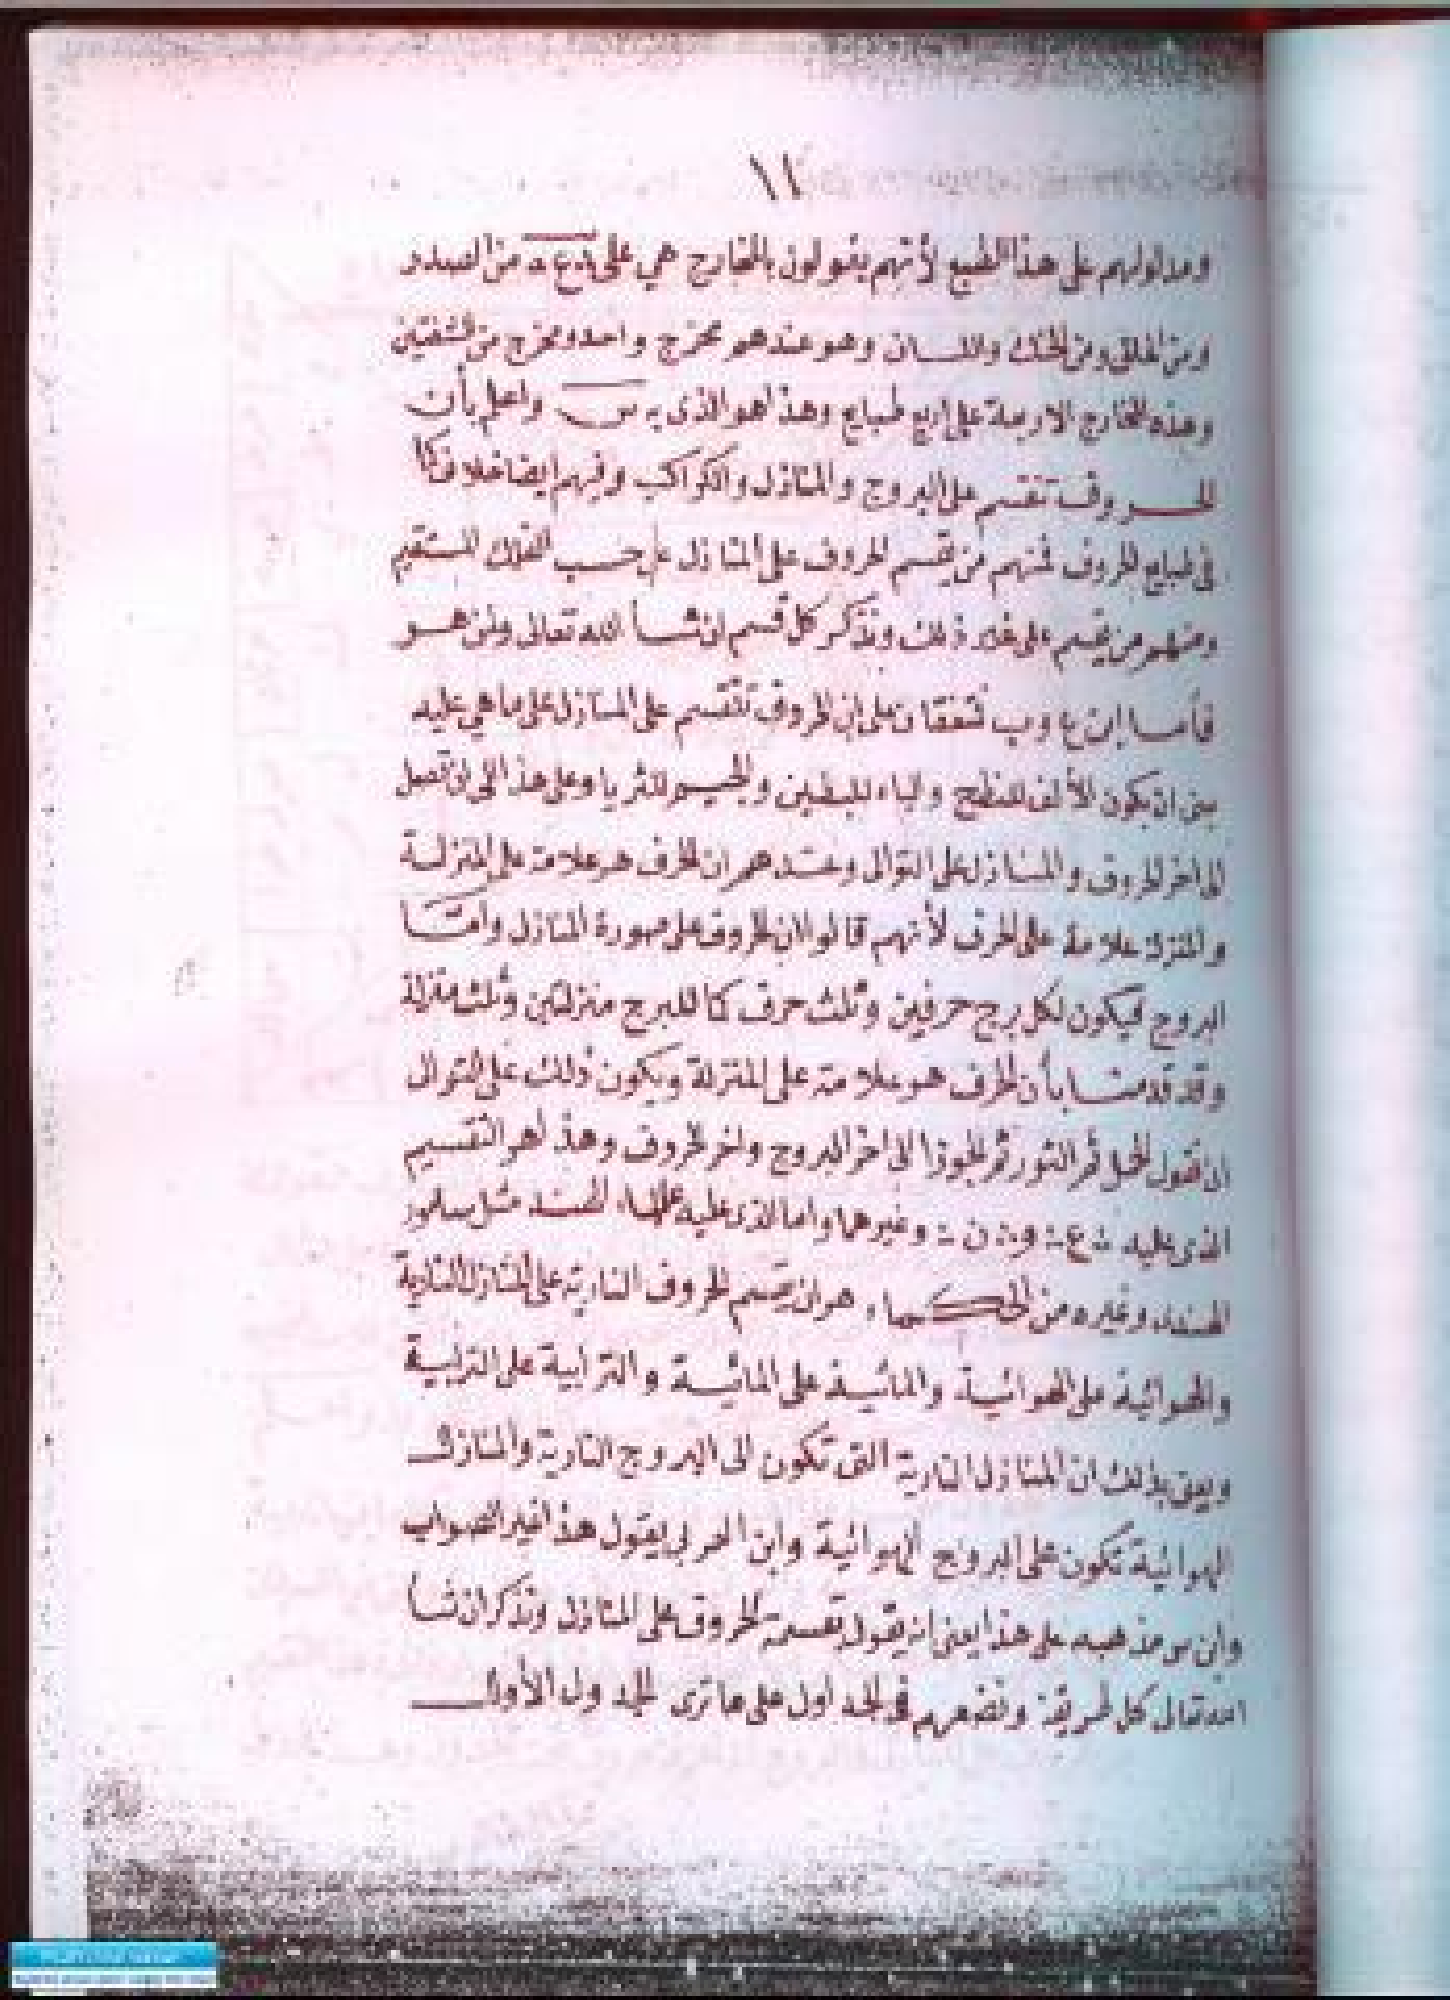 ١١
ومدلولهم على هذا الطبع لأنهم يقولون بالمخارج هي على من الصدر
ومن الحلق ومن الحنك واللسان وهو عندهم مخرج واحد ومخرج من الشفتين
وهذه المخارج الاربعة على اربع طبايع وهذا هو الذى به س واعلم بأن
الحروف تنقسم على البروج والمنازل والكواكب وفيهم ايضا خلاف كما
فى طبايع الحروف فمنهم من يقسم الحروف على المنازل على حسب الفلك المستقيم
ومنهم من يقسم على غير ذلك ونذكر كل قسم ان شأ الله تعالى ولمن هو
فأما ابن ع وب متفقان على ان الحروف تنقسم على المنازل على ما هي عليه
يعنى ان يكون الألف للنطح والباء للبطين والجيم للثريا وعلى هذا الى ان تصل
الى اخر الحروف والمنازل على التوالى وعندهم ان الحرف هو علامة على المنزلة
والمنزلة علامة على الحرف لأنهم قالوا ان الحروف على صورة المنازل وامّا
البروج فيكون لكل برج حرفين وثلث حرف كما للبرج منزلتين وثلث منزلة
وقد قدمنا بأن الحرف هو علامة على المنزلة ويكون ذلك على التوالى
ان نقول الحمل ثم الثور ثم الجوزا الى اخر البروج واخر الحروف وهذا هو التقسيم
الذى عليه ع ن وغيرهما واما الذى عليه علماء الهند مثل
الهندى وغيره من الحكماء هو ان يقسم الحروف النارية على المنازل النارية
والهوائية على الهوائية والمائية على المائية والترابية على الترابية
ويعنى بذلك ان المنازل النارية التى تكون الى البروج النارية والمنازل
الهوائية تكون على البروج الهوائية وابن العربى يقول هذا غير الصواب
وابن س مذهبه على هذا يعنى انه يقول بقسمة الحروف على المنازل ونذكر ان شأ
الله تعالى كل طريقة ونضعهم فى الجداول على ما ترى الجدول الأول